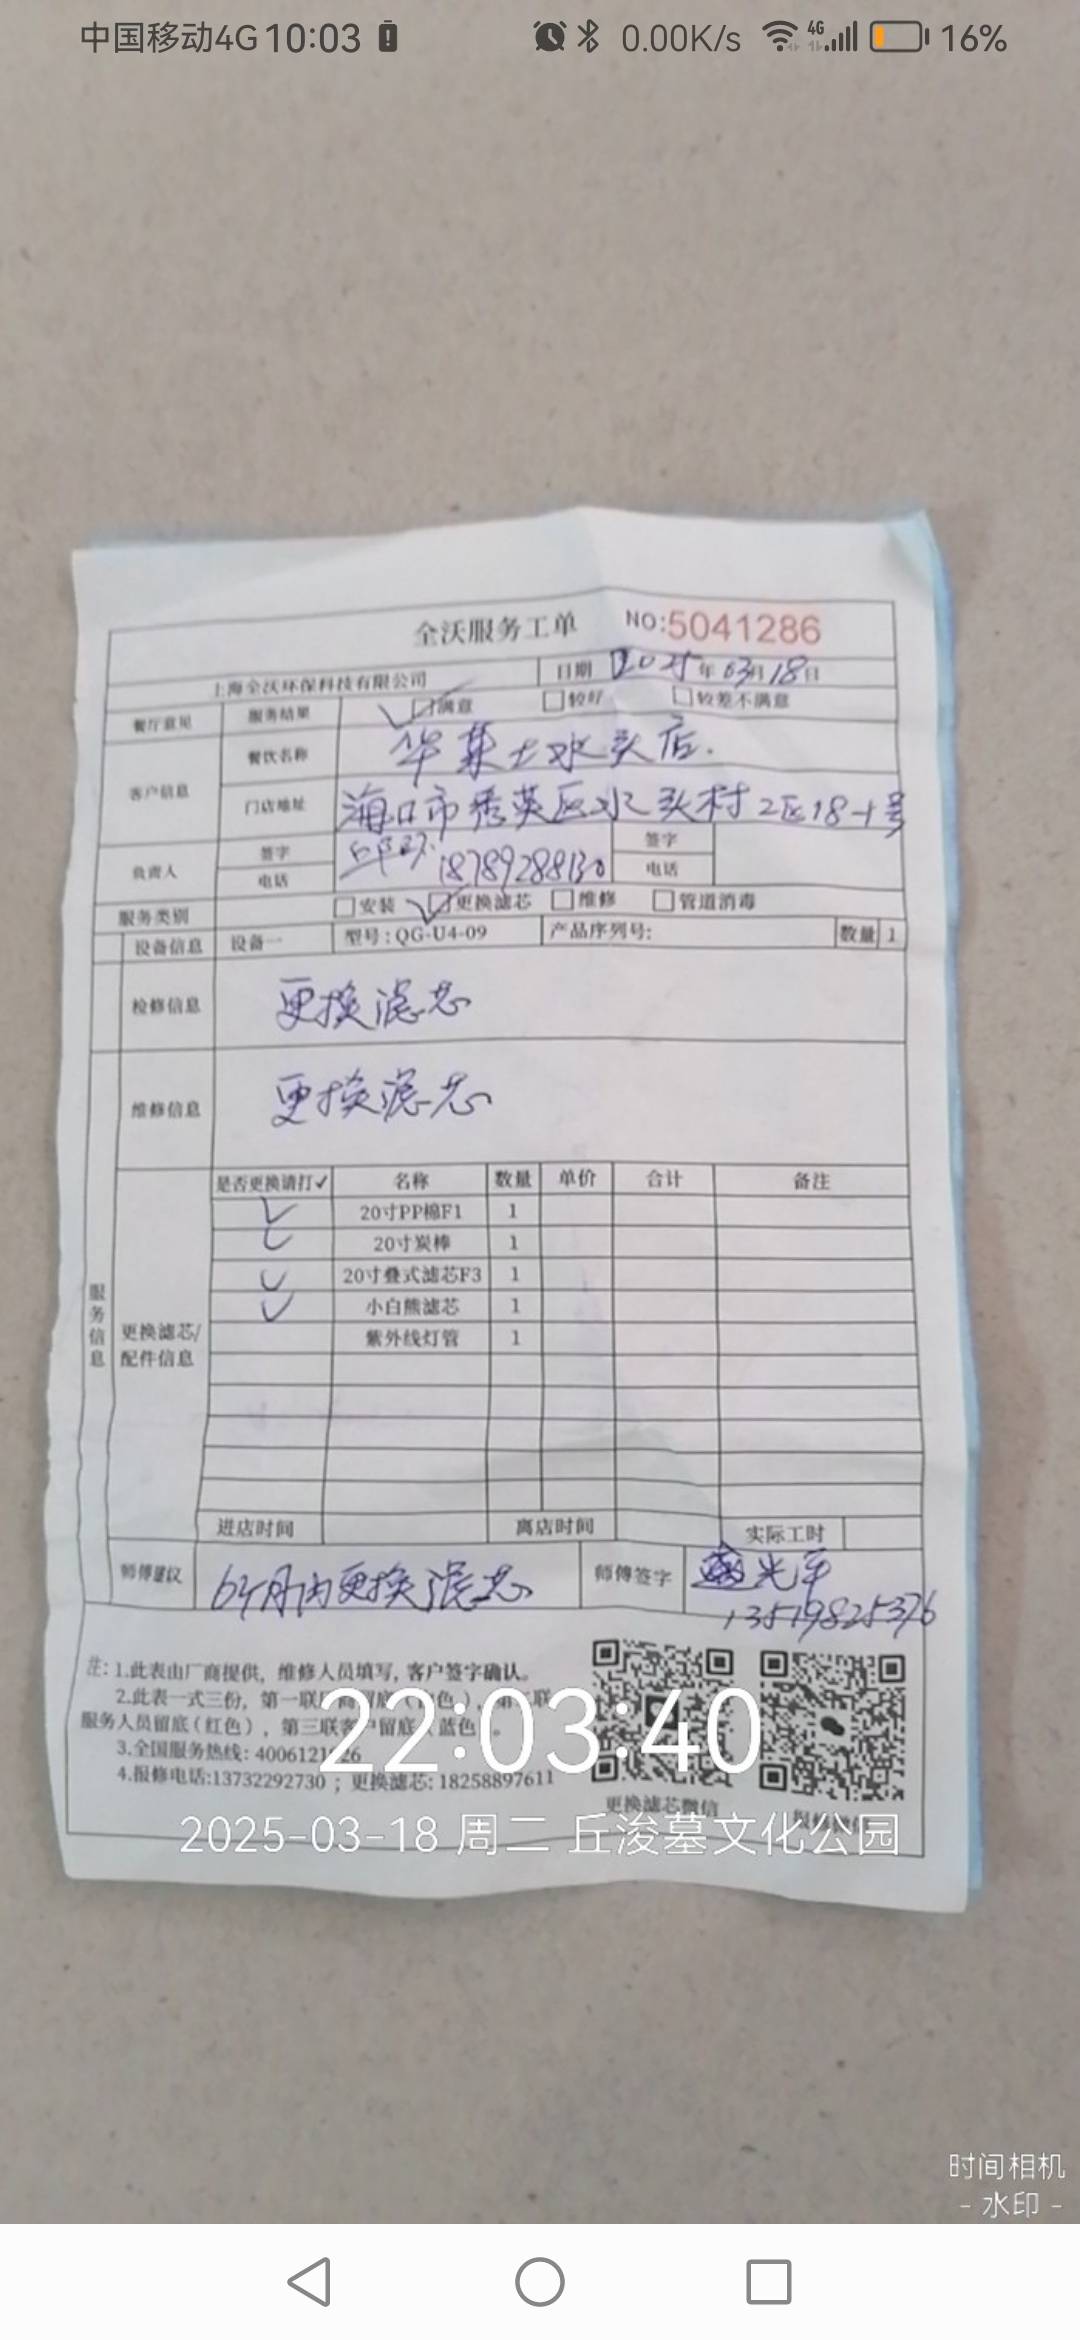 中国移动4G 10:03 0.00K/s 4G 16%
全沃服务工单 NO:5041286
上海全沃环保科技有限公司 日期 2025年03月18日
餐厅意见 服务结果 满意 较好 较差不满意
客户信息 餐饮名称 华莱士水头店.
门店地址 海口市秀英区水头村2区18-1号
负责人 签字 签字
电话 18789288130 电话
服务类别 安装 更换滤芯 维修 管道消毒
设备信息 设备一 型号:QG-U4-09 产品序列号: 数量 1
检修信息 更换滤芯
维修信息 更换滤芯
服务信息
更换滤芯/配件信息
是否更换请打✓ 名称 数量 单价 合计 备注
✓ 20寸PP棉F1 1
✓ 20寸炭棒 1
✓ 20寸叠式滤芯F3 1
✓ 小白熊滤芯 1
紫外线灯管 1
进店时间 离店时间 实际工时
师傅建议 6个月内更换滤芯 师傅签字 光平
13519825376
注: 1.此表由厂商提供, 维修人员填写, 客户签字确认。
2.此表一式三份, 第一联
服务人员留底(红色), 第三联客户留底 蓝色 。
3.全国服务热线: 4006121 26
4.报修电话:13732292730 ; 更换滤芯: 18258897611
更换滤芯微信
22:03:40
2025-03-18 周二 丘浚墓文化公园
时间相机
- 水印 -